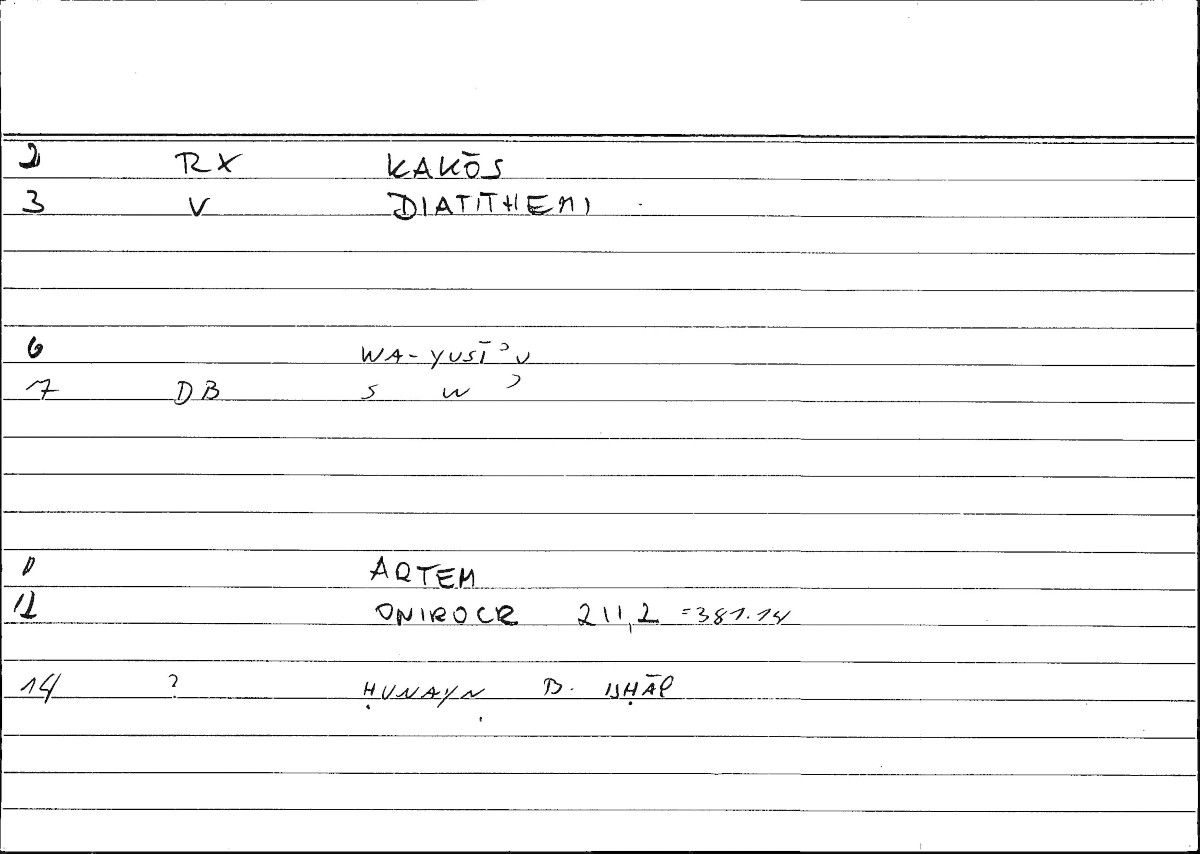 2 RX KAKŌS
3 V DIATITHEMI
6 WA-YUSĪʾU
7 DB S W ʾ
ARTEM
ONIROCR 211,2 =381.14
14 ? ḤUNAYN B. ISḤĀQ